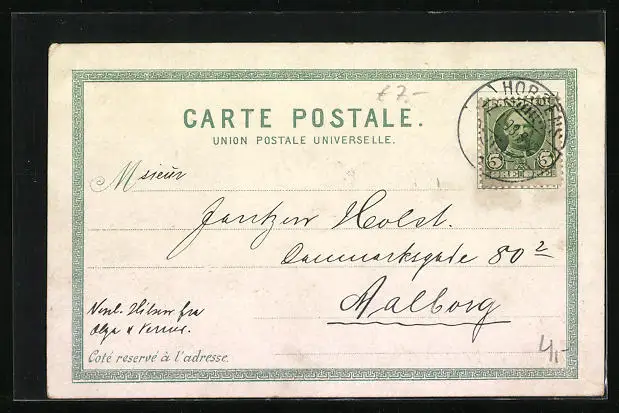 £7.-
CARTE POSTALE.
UNION POSTALE UNIVERSELLE.
HORSENS
5 5
Msieur
Jantzen Holst.
Danmarksgade 80²
Aalborg
Venl. Hilsen fra
Olga &
Coté reservé à l'adresse.
4,-